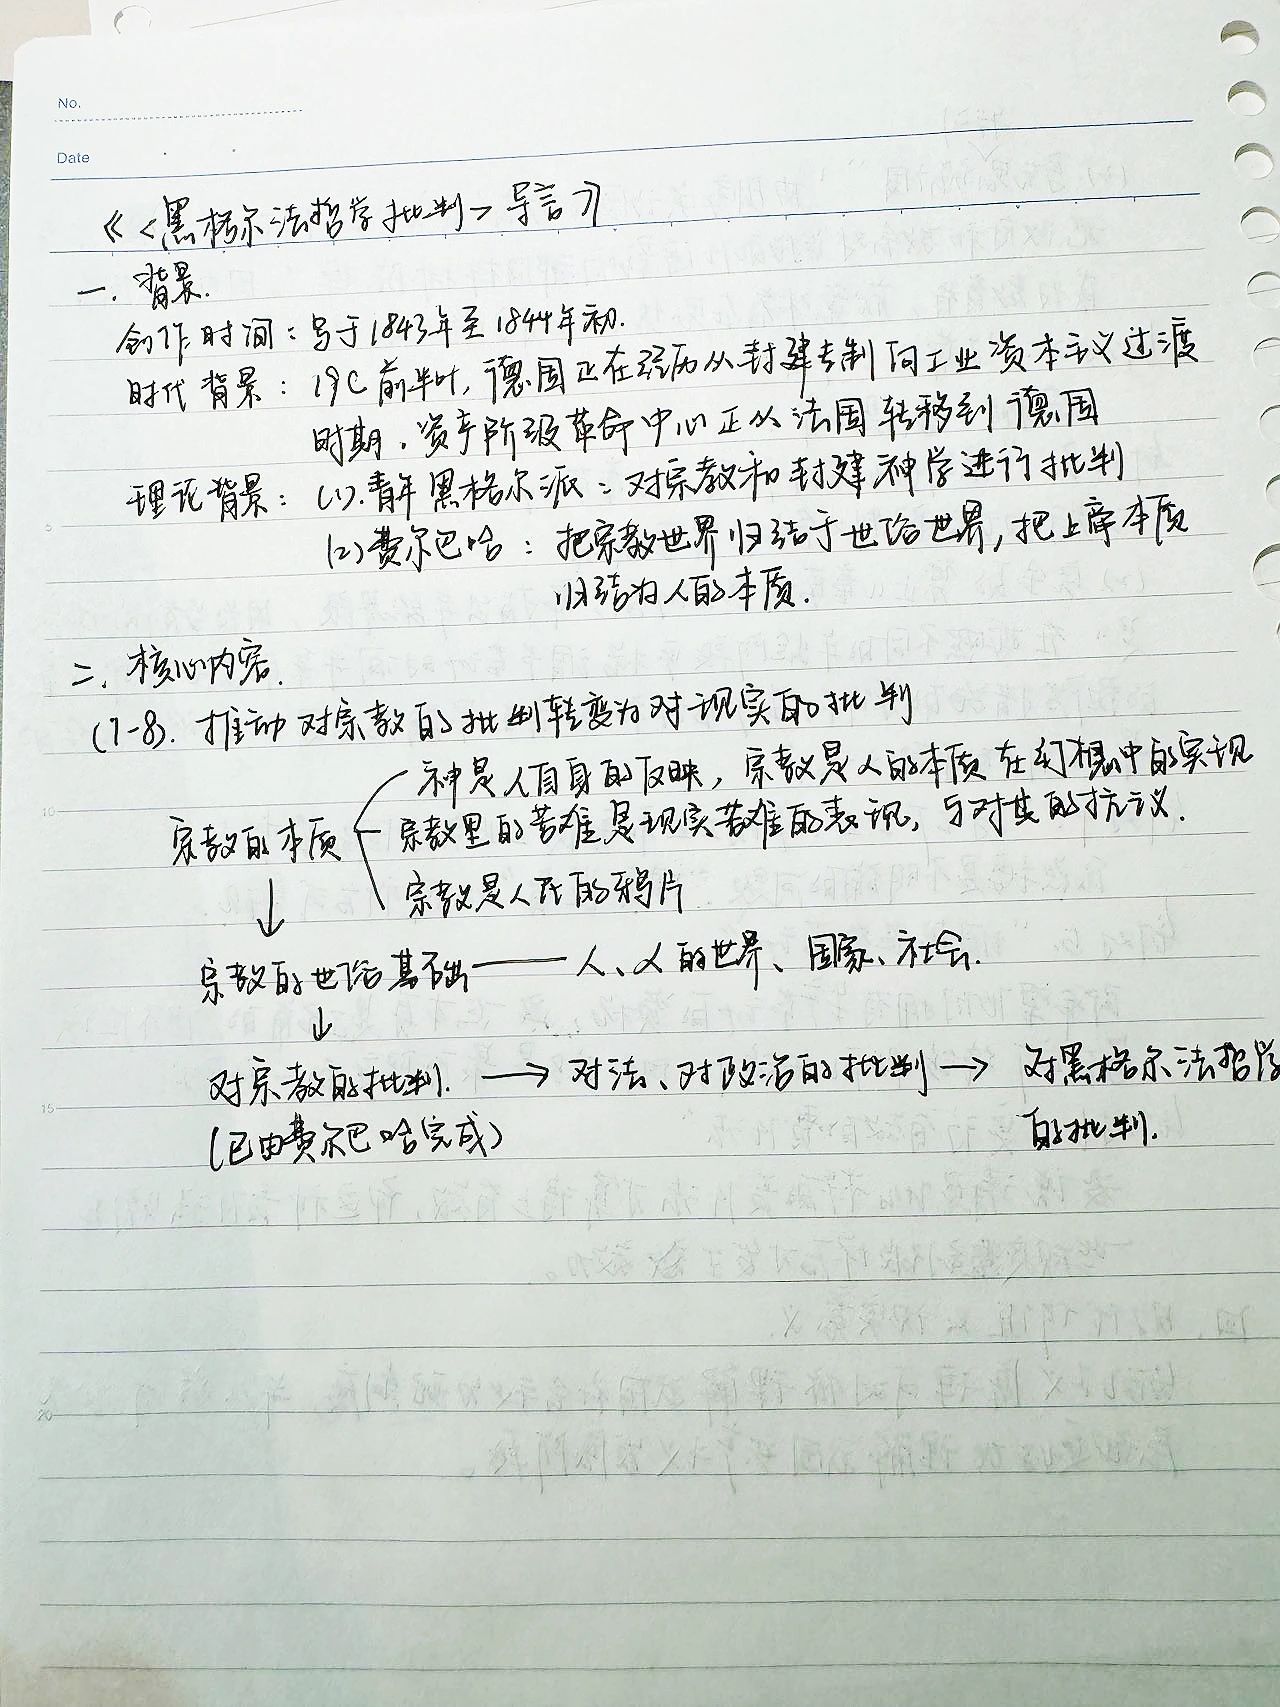 No.
Date
《〈黑格尔法哲学批判〉导言》
一. 背景.
创作时间：写于1843年至1844年初.
时代背景：19C前半叶，德国正在经历从封建专制向工业资本主义过渡
时期. 资产阶级革命中心正从法国转移到德国
理论背景：(1).青年黑格尔派：对宗教和封建神学进行批判
(2)费尔巴哈：把宗教世界归结于世俗世界，把上帝本质
归结为人的本质.
二. 核心内容.
(1-8). 推动对宗教的批判转变为对现实的批判
神是人自身的反映，宗教是人的本质在幻想中的实现
宗教的本质
宗教里的苦难是现实苦难的表现，与对其的抗议.
宗教是人民的鸦片
↓
宗教的世俗基础——人、人的世界、国家、社会.
↓
对宗教的批判. → 对法、对政治的批判 → 对黑格尔法哲学
(已由费尔巴哈完成) 的批判.
5
10
15
20